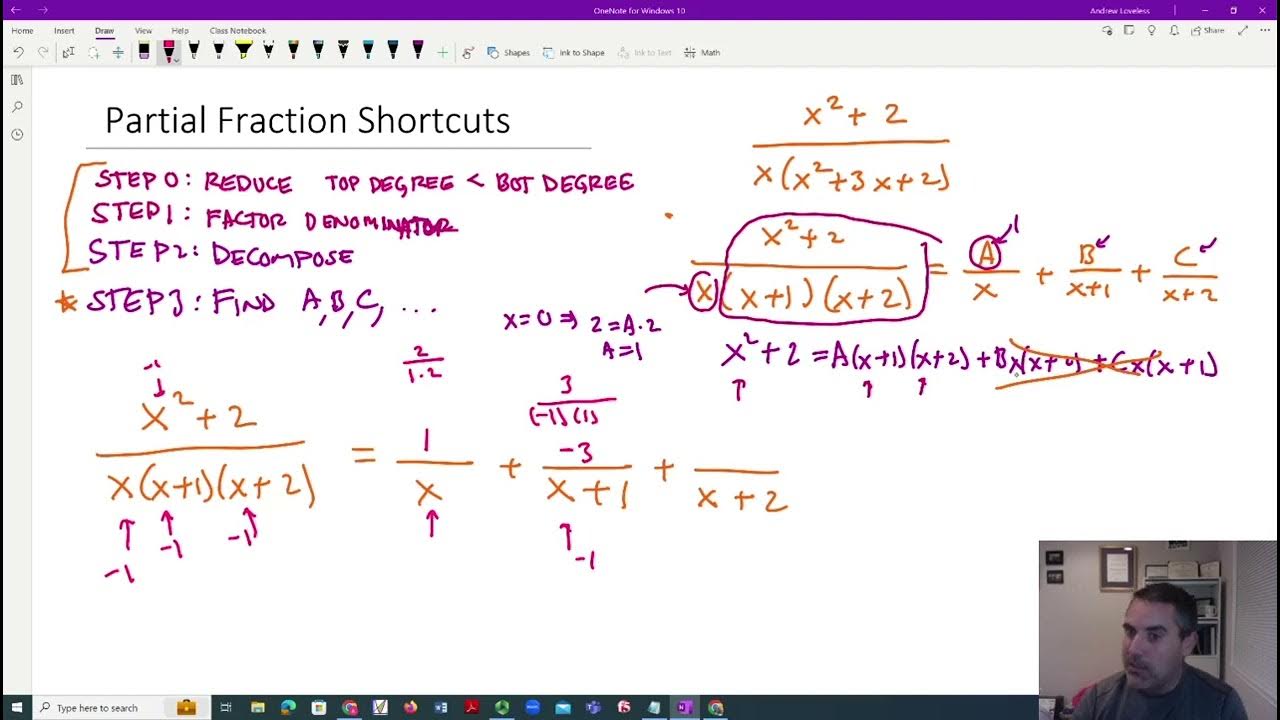 OneNote for Windows 10
Andrew Loveless
Home Insert Draw View Help Class Notebook
Share
Shapes Ink to Shape Ink to Text Math
Partial Fraction Shortcuts
STEP 0: REDUCE TOP DEGREE < BOT DEGREE
STEP 1: FACTOR DENOMINATOR
STEP 2: DECOMPOSE
STEP 3: FIND A, B, C, ...
x² + 2
x(x²+3x+2)
x² + 2
x (x+1)(x+2) = A/x + B/(x+1) + C/(x+2)
1
x=0 ⇒ 2 = A·2
A=1
x² + 2 = A(x+1)(x+2) + Bx(x+2) + Cx(x+1)
2
1·2
3
(-1)(1)
-1
x² + 2
x(x+1)(x+2) = 1/x + -3/(x+1) + /(x+2)
-1 -1 -1 -1
Type here to search